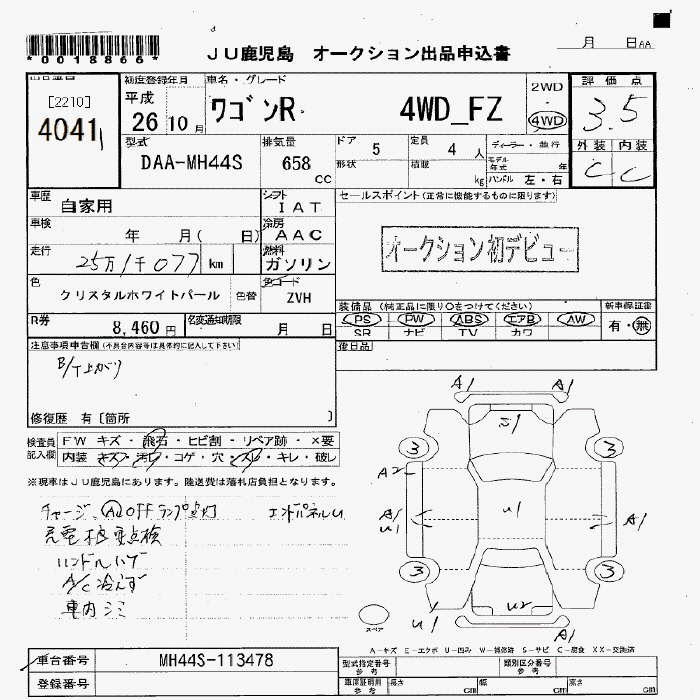 *0018866*
JU鹿児島 オークション出品申込書
月 日AA
[2210]
4041
初度登録年月
平成
26 10 月
車名・グレード
ワゴンR 4WD_FZ
2WD
4WD
評価点
3.5
外装 内装
C C
型式
DAA-MH44S
排気量
658
CC
ドア 5
定員 4 人
形状
積載 kg
ディーラー・並行
モデル年式 年
ハンドル 左・右
車歴
自家用
シフト
IAT
セールスポイント(正常に機能するものに限ります)
オークション初デビュー
車検
年 月( 日)
冷房
AAC
走行
25万1千077 km
燃料
ガソリン
色
クリスタルホワイトパール
色替
色コード
ZVH
装備品(純正品に限り○をつけてください)
新車時保証書
PS PW ABS エアB AW
SR ナビ TV カワ
有・無
R券
8,460 円
名変通知期限
月 日
後日品
注意事項申告欄(不具合内容等は具体的に記入して下さい)
B/T上がり
修復歴 有〔箇所 〕
検査員記入欄
FW キズ・飛石・ヒビ割・リペア跡・×要
内装 キズ・汚れ・コゲ・穴・スレ・キレ・破レ
※現車はJU鹿児島にあります。陸送費は落札店負担となります。
エンドパネルU
ハンドルハゲ
A/C冷えず
車内シミ
A1 A1
S1
3 3
A2
A1 U1
U1
A1
3 3
U2
U1 A1
スペア
A-キズ E-エクボ U-凹み W-補修跡 S-サビ C-腐食 XX-交換済
車台番号
MH44S-113478
登録番号
型式指定番号
参考
類別区分番号
参考
車庫証明用
参考
長さ cm
幅 cm
高さ cm